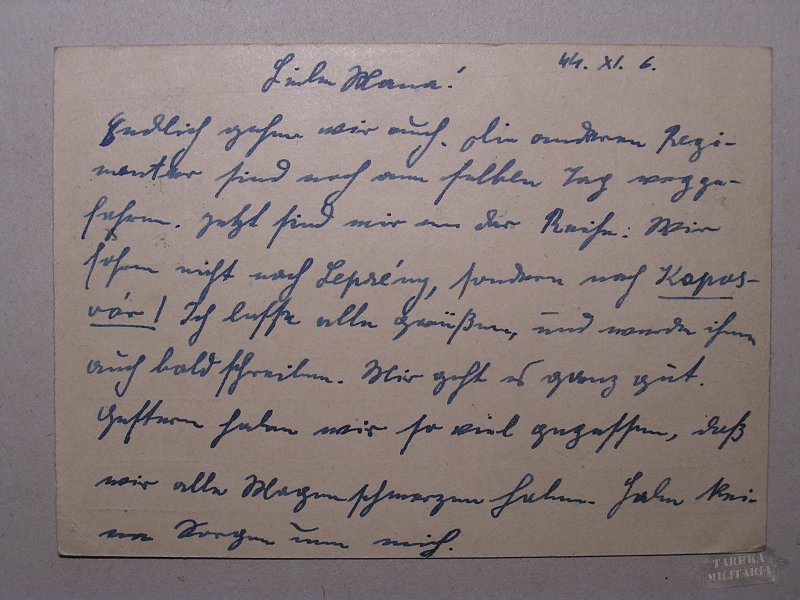 44. XI. 6.
Liebe Mama!
Endlich gehen wir auch. Die anderen Regi-
menter sind noch am selben Tag wegge-
fahren. Jetzt sind wir an der Reihe: Wir
fahren nicht nach Lepsény, sondern nach Kapos-
vár! Ich lasse alle grüßen, und werde ihnen
auch bald schreiben. Mir geht es ganz gut.
Gestern haben wir so viel gegessen, daß
wir alle Magenschmerzen haben. Habe kei-
ne Sorgen um mich.
TARRKA
MILITARIA